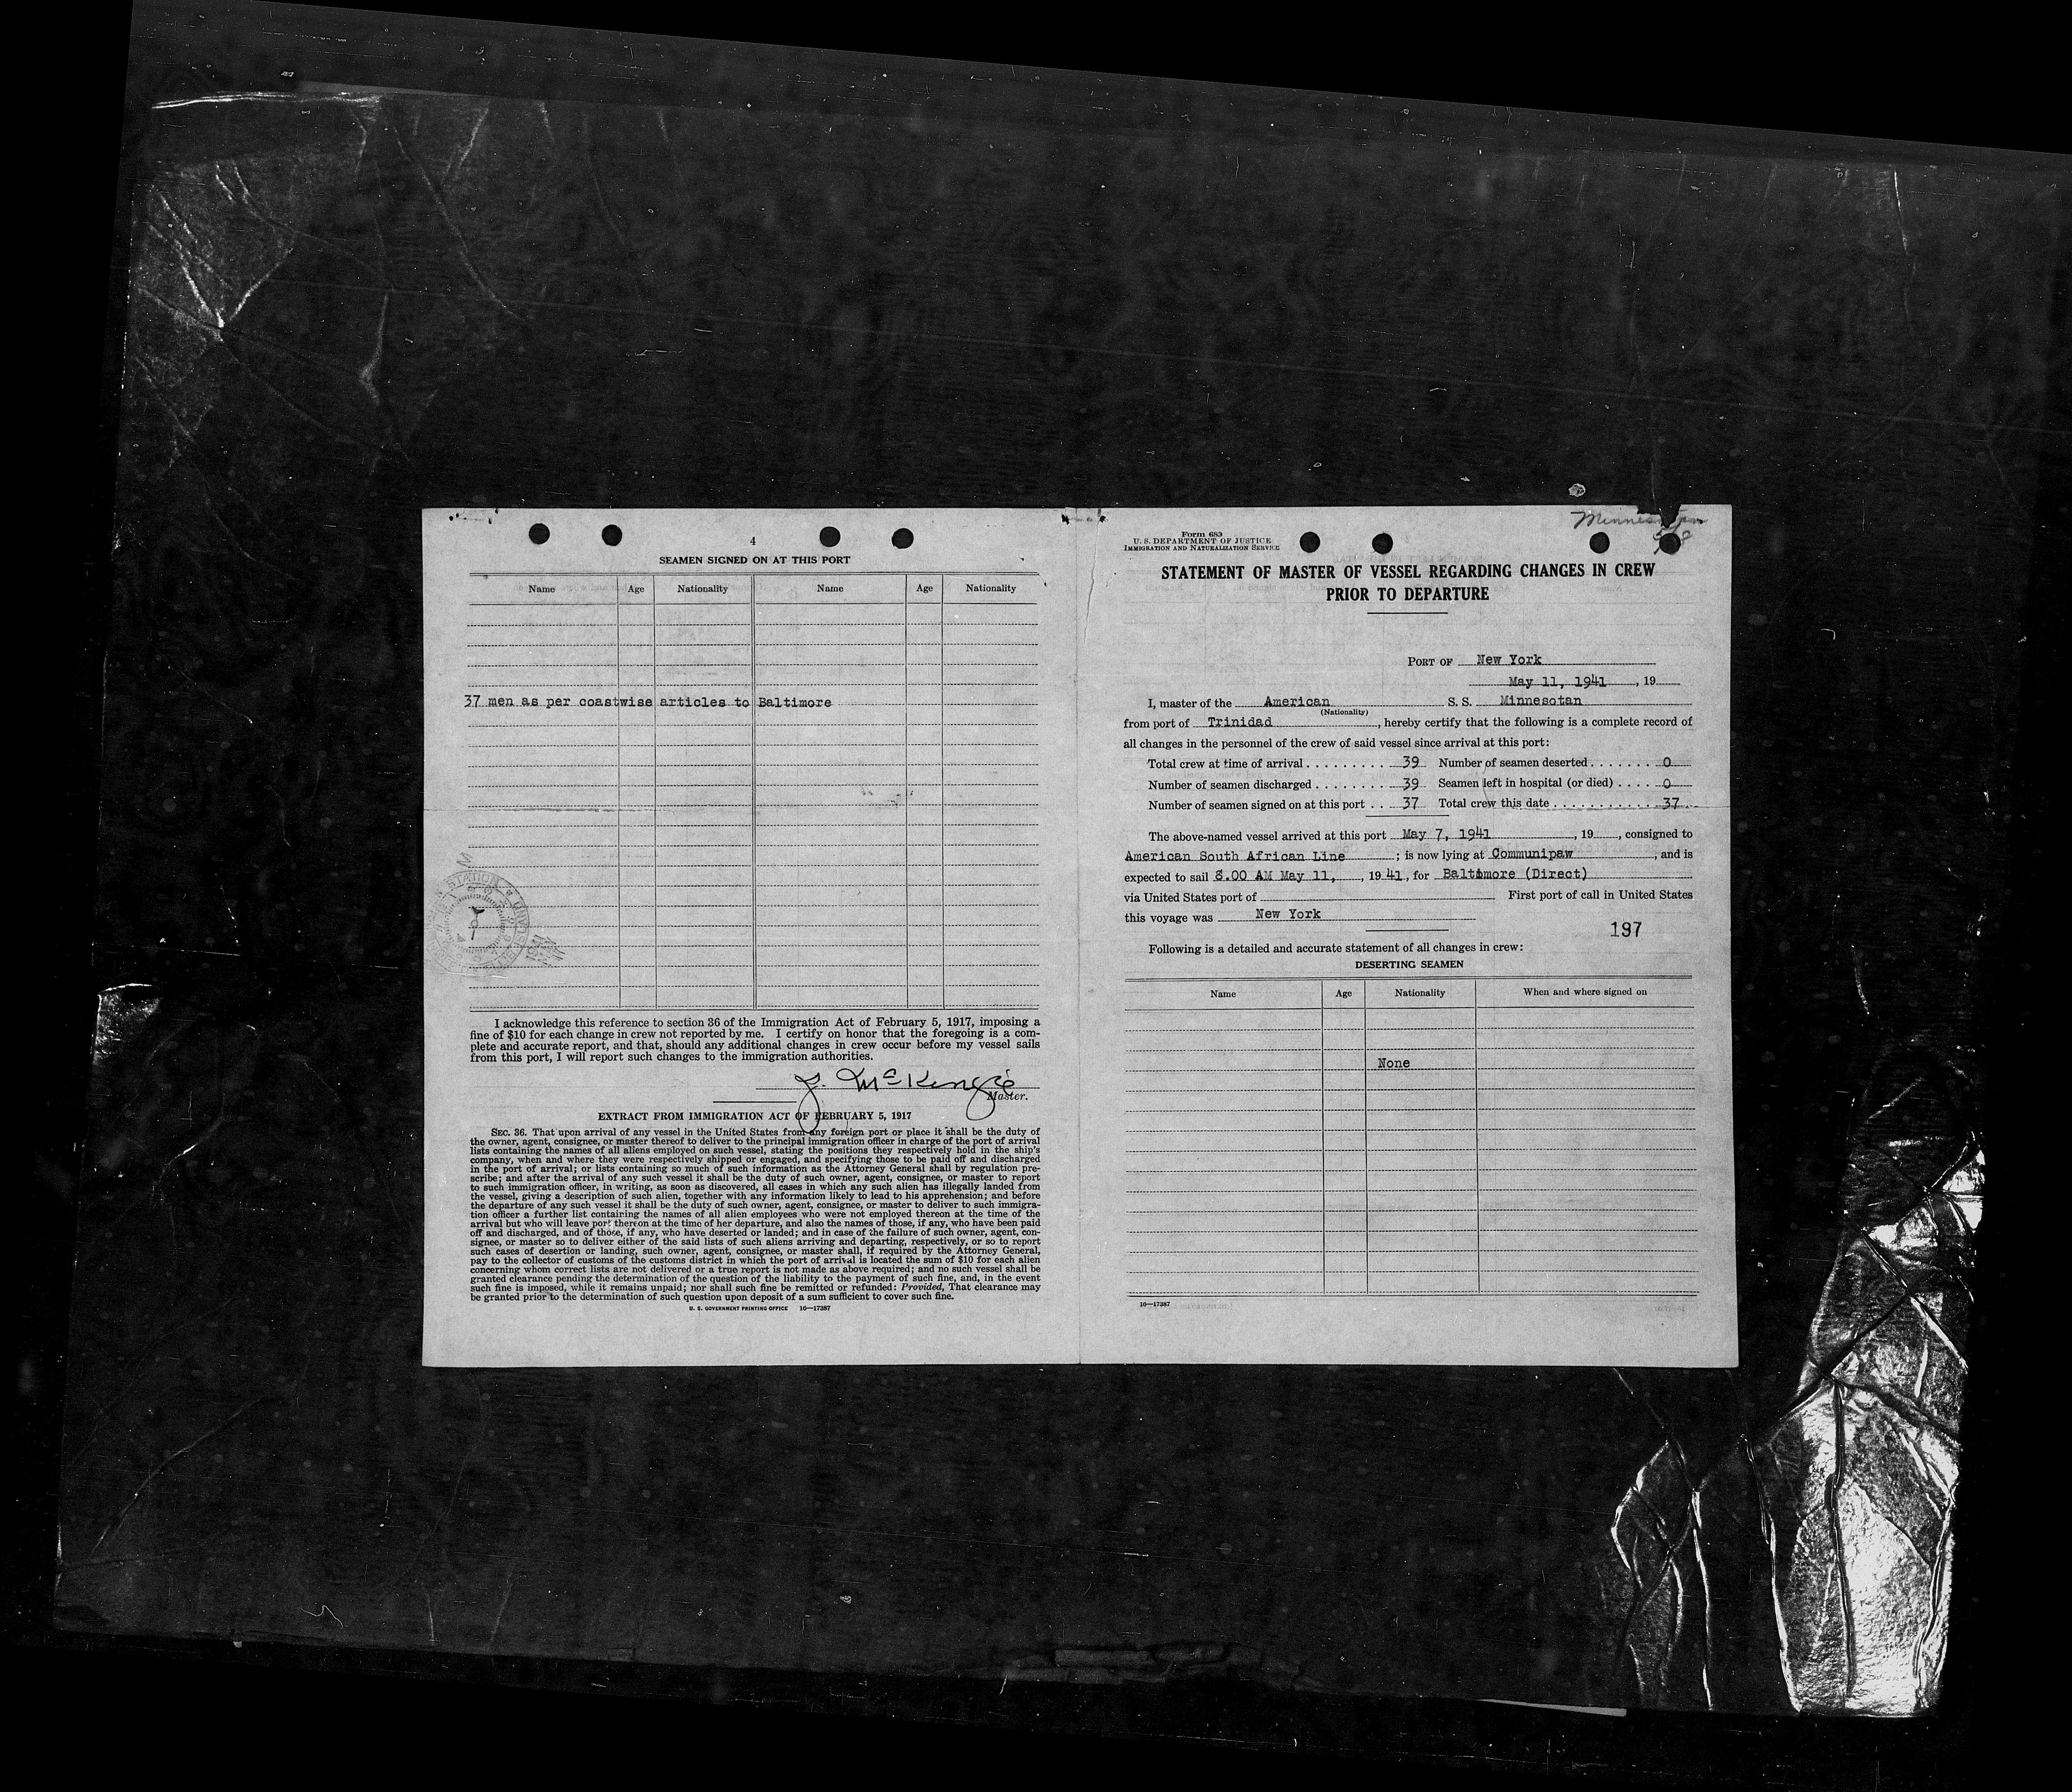 4
SEAMEN SIGNED ON AT THIS PORT
Name Age Nationality Name Age Nationality
37 men as per coastwise articles to Baltimore
I acknowledge this reference to section 36 of the Immigration Act of February 5, 1917, imposing a
fine of $10 for each change in crew not reported by me. I certify on honor that the foregoing is a com-
plete and accurate report, and that, should any additional changes in crew occur before my vessel sails
from this port, I will report such changes to the immigration authorities.
J. McKenzie
Master.
EXTRACT FROM IMMIGRATION ACT OF FEBRUARY 5, 1917
SEC. 36. That upon arrival of any vessel in the United States from any foreign port or place it shall be the duty of
the owner, agent, consignee, or master thereof to deliver to the principal immigration officer in charge of the port of arrival
lists containing the names of all aliens employed on such vessel, stating the positions they respectively hold in the ship's
company, when and where they were respectively shipped or engaged, and specifying those to be paid off and discharged
in the port of arrival; or lists containing so much of such information as the Attorney General shall by regulation pre-
scribe; and after the arrival of any such vessel it shall be the duty of such owner, agent, consignee, or master to report
to such immigration officer, in writing, as soon as discovered, all cases in which any such alien has illegally landed from
the vessel, giving a description of such alien, together with any information likely to lead to his apprehension; and before
the departure of any such vessel it shall be the duty of such owner, agent, consignee, or master to deliver to such immigra-
tion officer a further list containing the names of all alien employees who were not employed thereon at the time of the
arrival but who will leave port thereon at the time of her departure, and also the names of those, if any, who have been paid
off and discharged, and of those, if any, who have deserted or landed; and in case of the failure of such owner, agent, con-
signee, or master so to deliver either of the said lists of such aliens arriving and departing, respectively, or so to report
such cases of desertion or landing, such owner, agent, consignee, or master shall, if required by the Attorney General,
pay to the collector of customs of the customs district in which the port of arrival is located the sum of $10 for each alien
concerning whom correct lists are not delivered or a true report is not made as above required; and no such vessel shall be
granted clearance pending the determination of the question of the liability to the payment of such fine, and, in the event
such fine is imposed, while it remains unpaid; nor shall such fine be remitted or refunded: Provided, That clearance may
be granted prior to the determination of such question upon deposit of a sum sufficient to cover such fine.
U. S. GOVERNMENT PRINTING OFFICE 16—17387
Minnesotan
Form 689
U. S. DEPARTMENT OF JUSTICE
IMMIGRATION AND NATURALIZATION SERVICE
STATEMENT OF MASTER OF VESSEL REGARDING CHANGES IN CREW
PRIOR TO DEPARTURE
PORT OF New York
May 11, 1941, 19
I, master of the American S. S. Minnesotan
(Nationality)
from port of Trinidad, hereby certify that the following is a complete record of
all changes in the personnel of the crew of said vessel since arrival at this port:
Total crew at time of arrival . . . . . . . . . 39 Number of seamen deserted . . . . . . . 0
Number of seamen discharged . . . . . . . . 39 Seamen left in hospital (or died) . . . . . 0
Number of seamen signed on at this port . . 37 Total crew this date . . . . . . . . . . . . 37
The above-named vessel arrived at this port May 7, 1941, 19, consigned to
American South African Line; is now lying at Communipaw, and is
expected to sail 8.00 AM May 11, , 19 41, for Baltimore (Direct)
via United States port of First port of call in United States
this voyage was New York
197
Following is a detailed and accurate statement of all changes in crew:
DESERTING SEAMEN
Name Age Nationality When and where signed on
None
16—17387